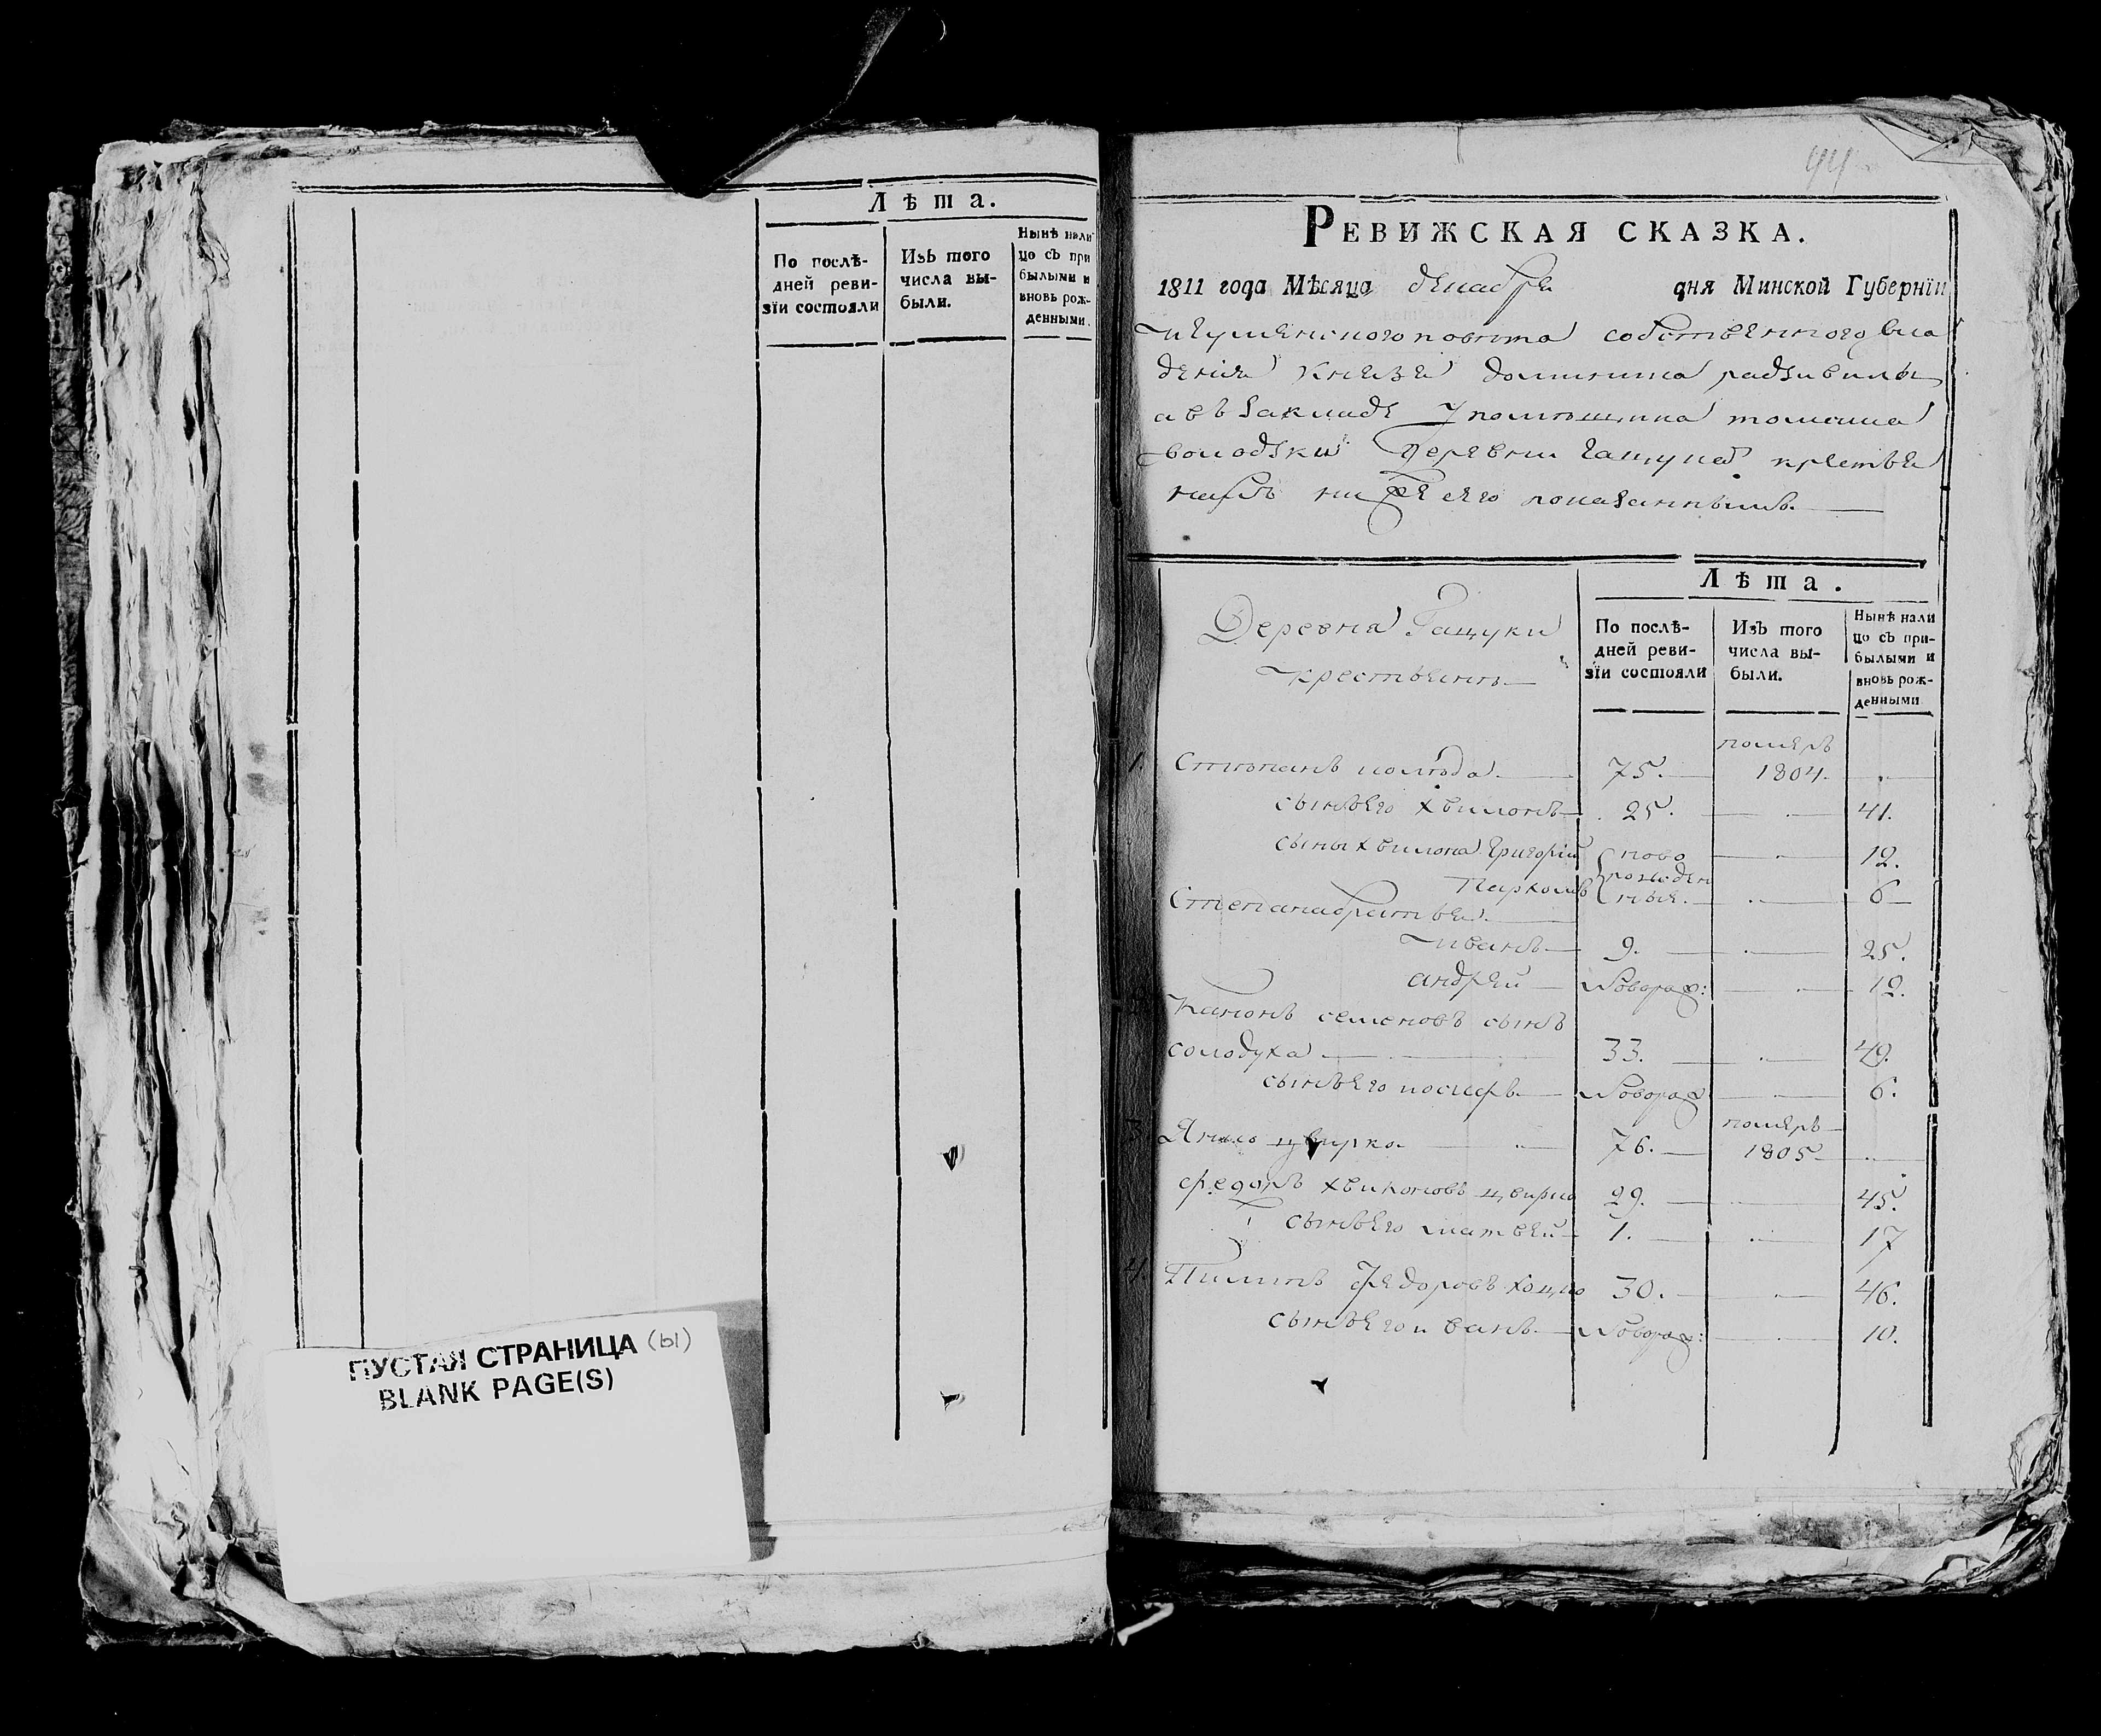 Лѣта.
По послѣ-
дней реви-
зїи состояли
Изъ того
числа вы-
были.
Нынѣ нали
цо съ при
былыми и
вновь рож-
денными.
ПУСТАЯ СТРАНИЦА (ы)
BLANK PAGE(S)
44
РЕВИЖСКАЯ СКАЗКА.
1811 года Мѣсяца декабря дня Минской Губернїи
игуменского повѣта собственного вла
дения князя доминика радзивилы
а въ закладе у помѣщика томаша
володзки деревни гацуков крестья
намъ ниже сего показаннымъ.
Деревня Гацуки
крестьянъ
Лѣта.
По послѣ-
дней реви-
зїи состояли
Изъ того
числа вы-
были.
Нынѣ нали
цо съ при-
былыми и
вновь рож-
денными
1. Стѣпанъ 75. померъ 1804.
сынъ его хвилонъ 25. 41.
сыны хвилона григорій ново 12.
Пархомъ рожден ные. 6
Степана братья
иванъ 9. 25.
андрей новорож: 12.
канонъ семеновъ сынъ
солодуха 33. 49.
сынъ его иосифъ новорож 6.
3 цвирка 76. померъ 1805
федоръ цвирко 29. 45.
сынъ его матвей 1. 17
4. Пилипъ федоровъ 30. 46.
сынъ его иванъ новорож: 10.